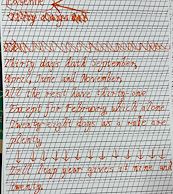 Thirty days
Thirty days hath September,
April, June and November,
All the rest have thirty-one
Except for February which alone
Twenty-eight days as a rule are
plenty
Till leap year gives it nine and
twenty.